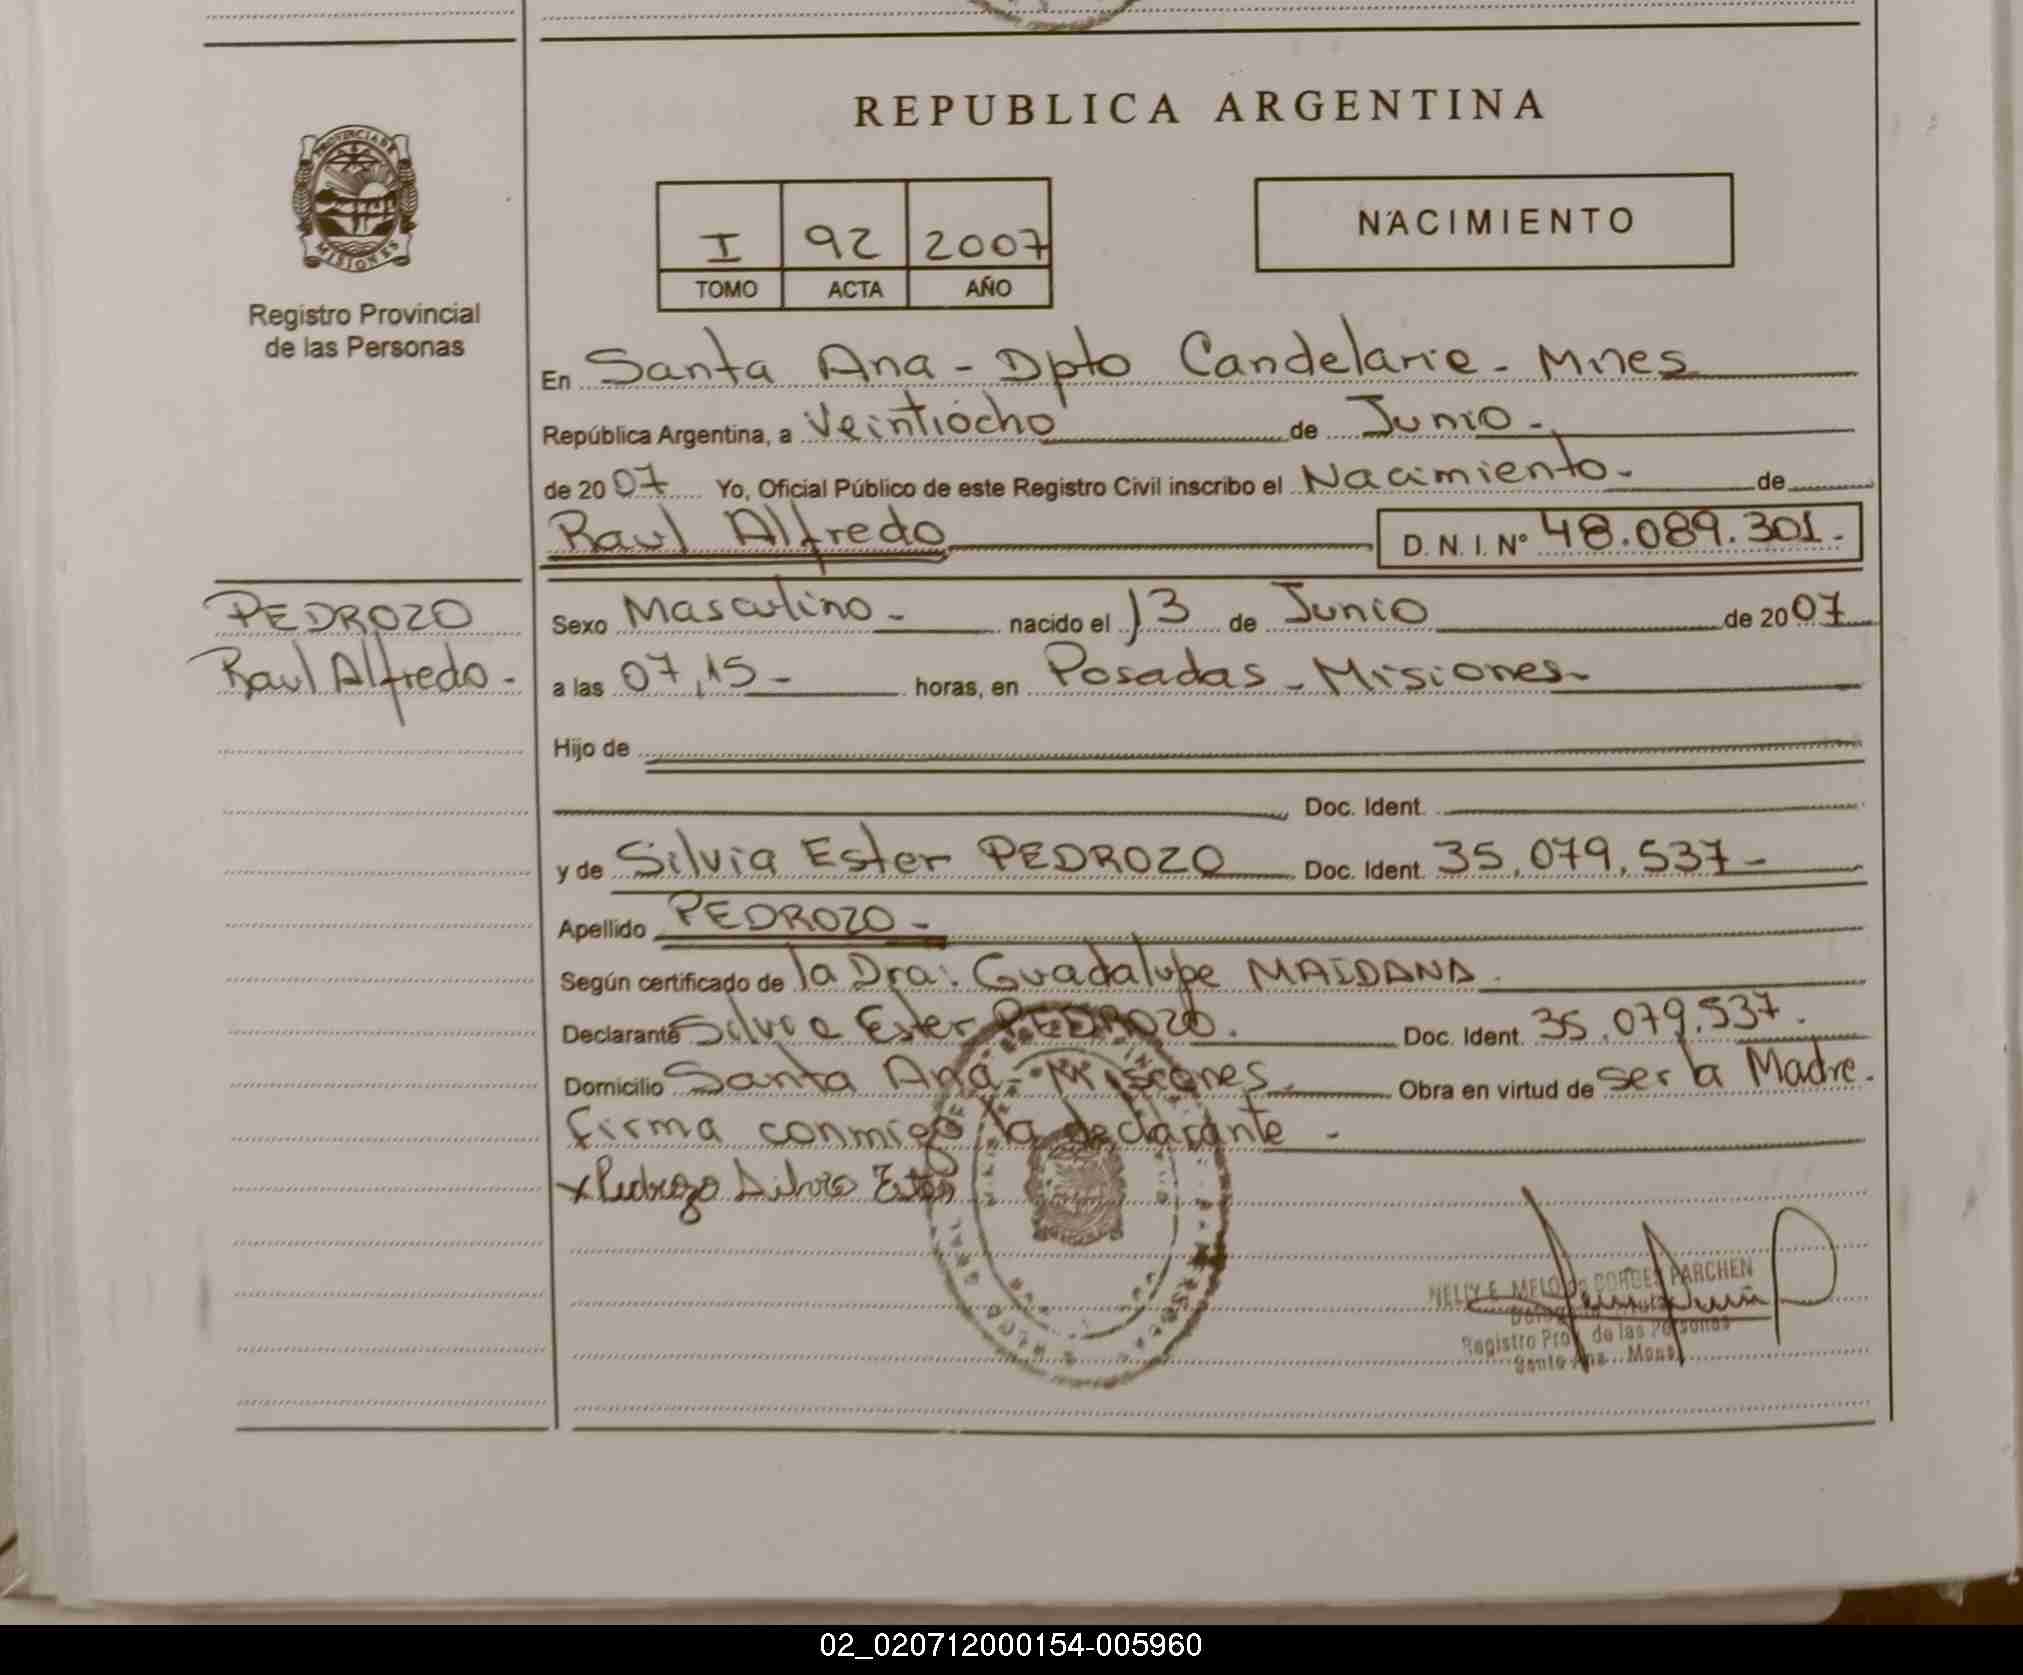 REPUBLICA ARGENTINA
PROVINCIA DE
MISIONES
Registro Provincial
de las Personas
I 92 2007
TOMO ACTA AÑO
NACIMIENTO
En Santa Ana - Dpto Candelaria - Mnes
República Argentina, a Veintiocho de Junio -
de 2007 Yo, Oficial Público de este Registro Civil inscribo el Nacimiento - de
Raul Alfredo D. N. I. Nº 48.089.301.-
PEDROZO
Raul Alfredo -
Sexo Masculino - nacido el 13 de Junio de 2007
a las 07,15 - horas, en Posadas - Misiones -
Hijo de
Doc. Ident.
y de Silvia Ester PEDROZO Doc. Ident. 35.079.537 -
Apellido PEDROZO -
Según certificado de la Dra: Guadalupe MAIDANA
Declarante Silvia Ester PEDROZO. Doc. Ident. 35.079.537.
Domicilio Santa Ana - Misiones Obra en virtud de ser la Madre.
firma conmigo la declarante -
x Pedrozo Silvia Ester
NELLY E. MELO de BORGES PARCHEN
Registro Prov. de las Personas
Santa Ana - Mnes
02_020712000154-005960